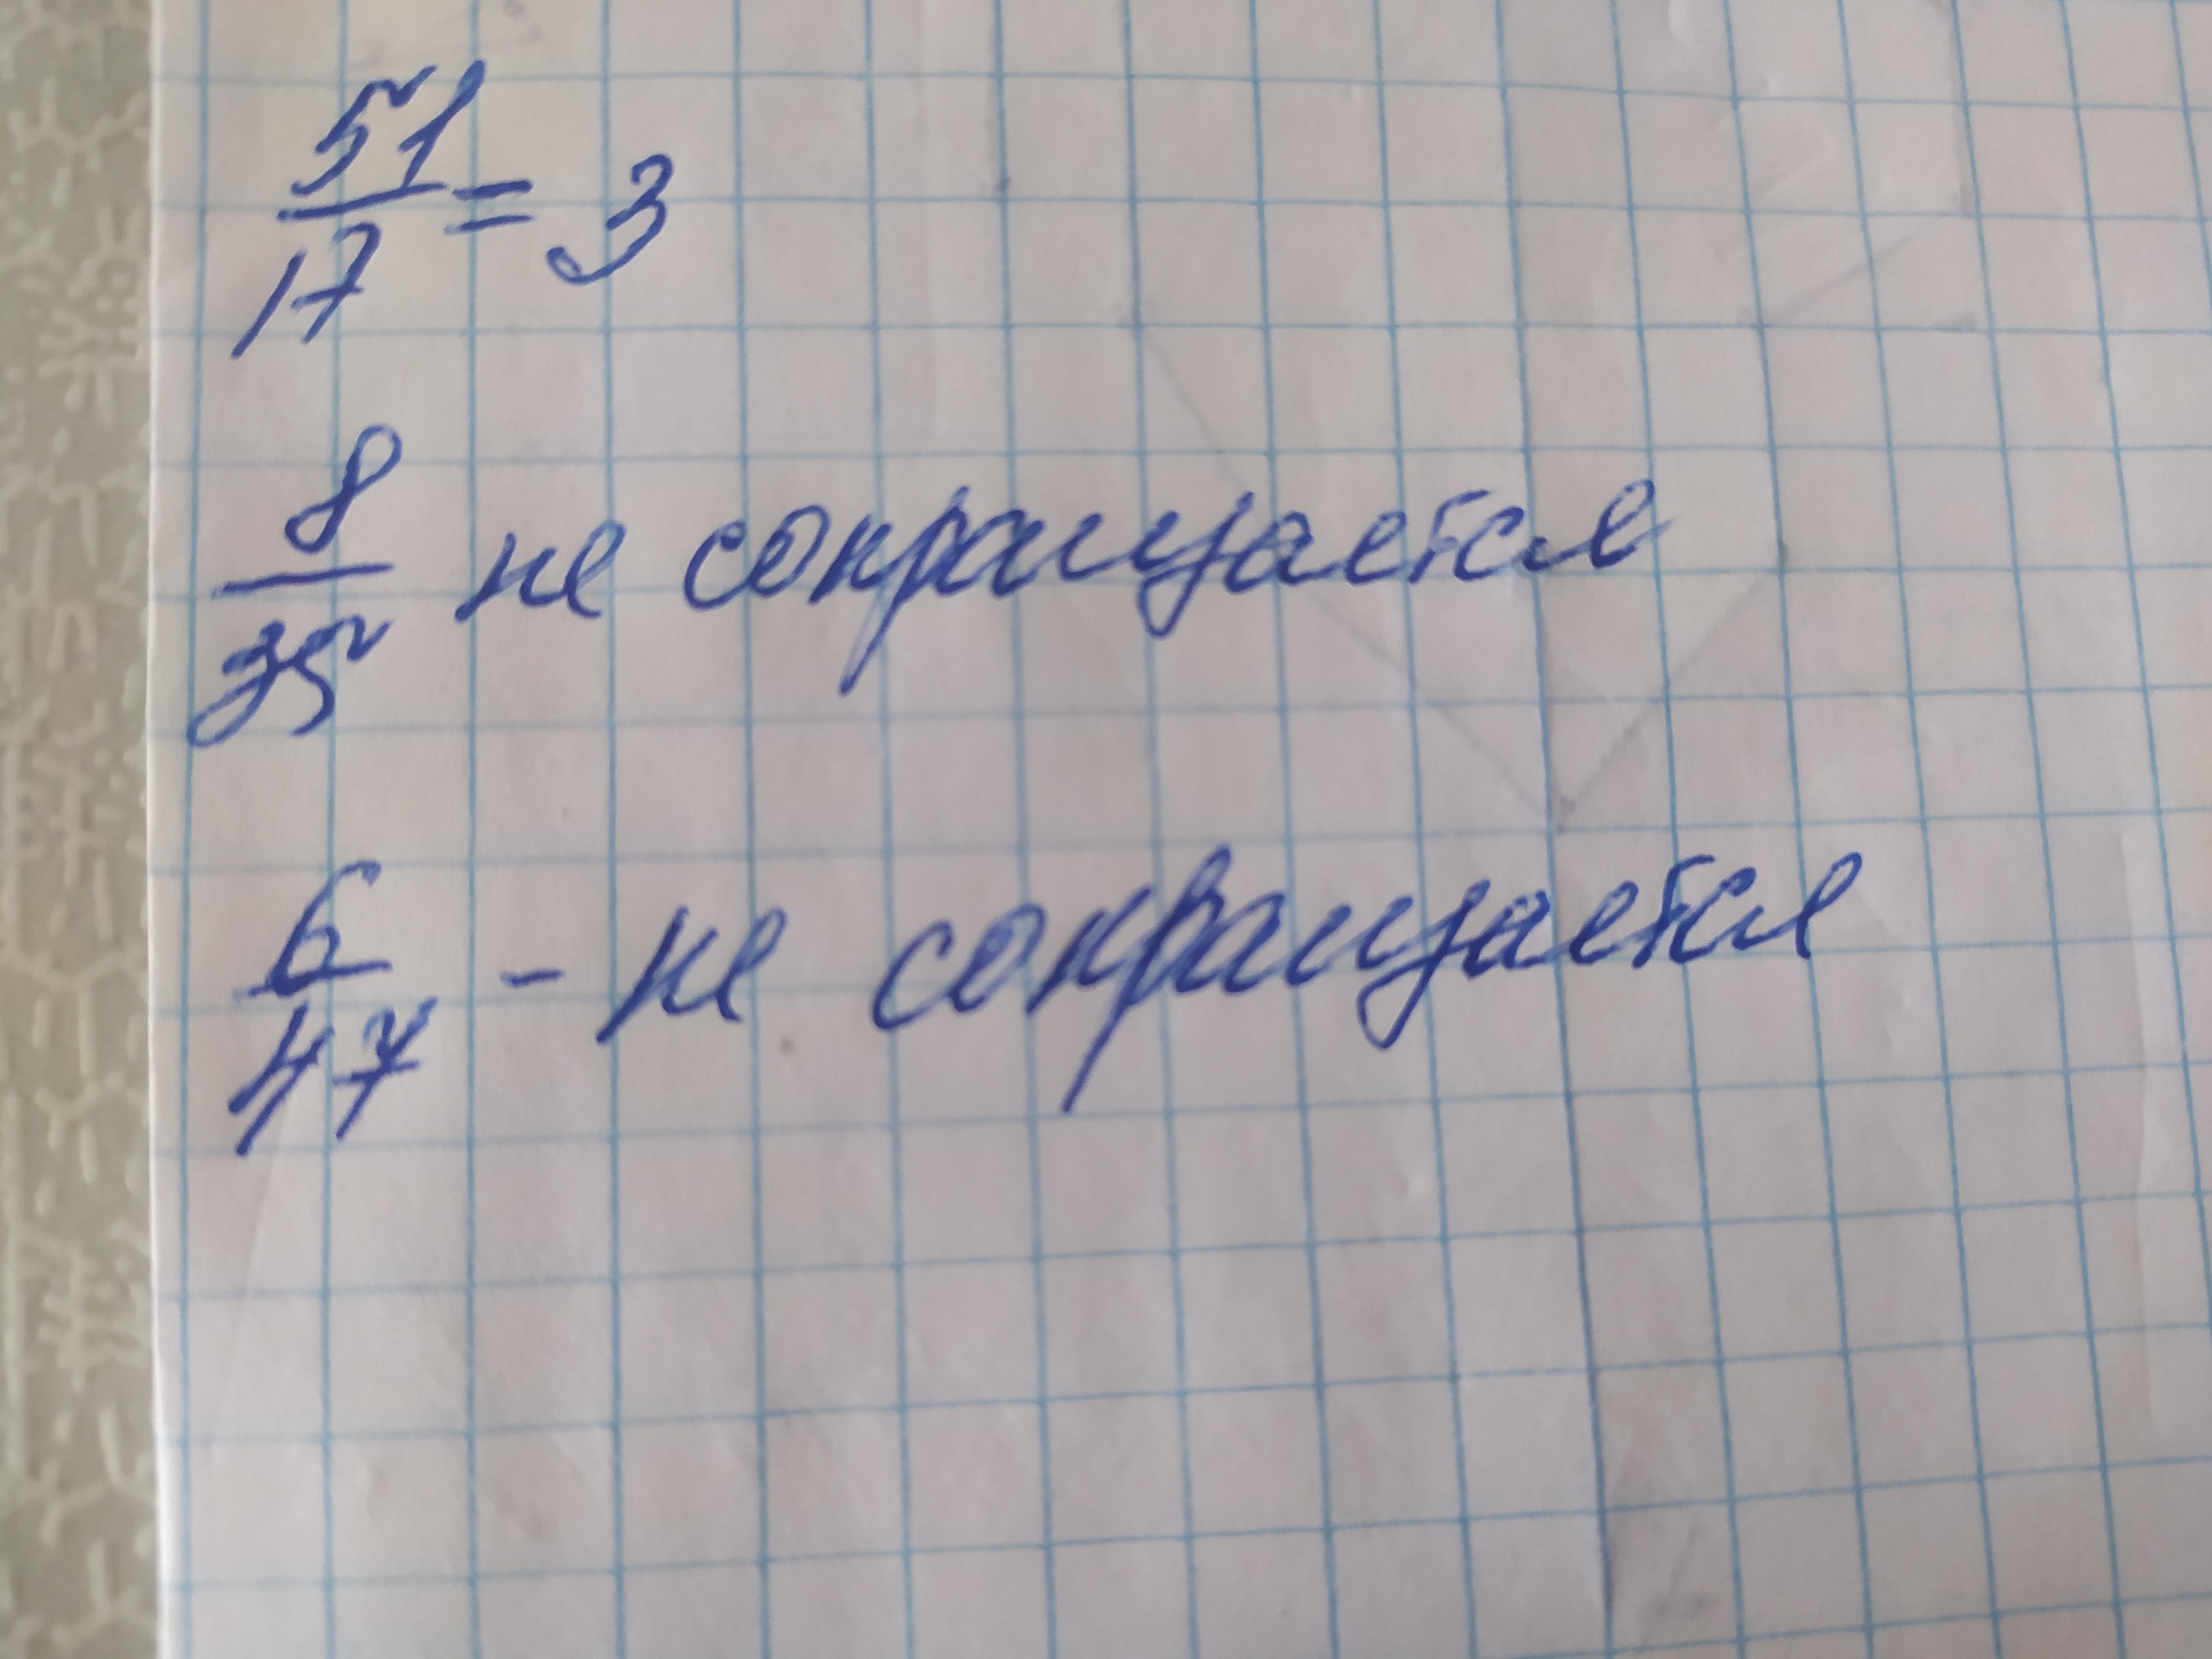 51/17 = 3
8/35 не сокращается
6/47 - не сокращается